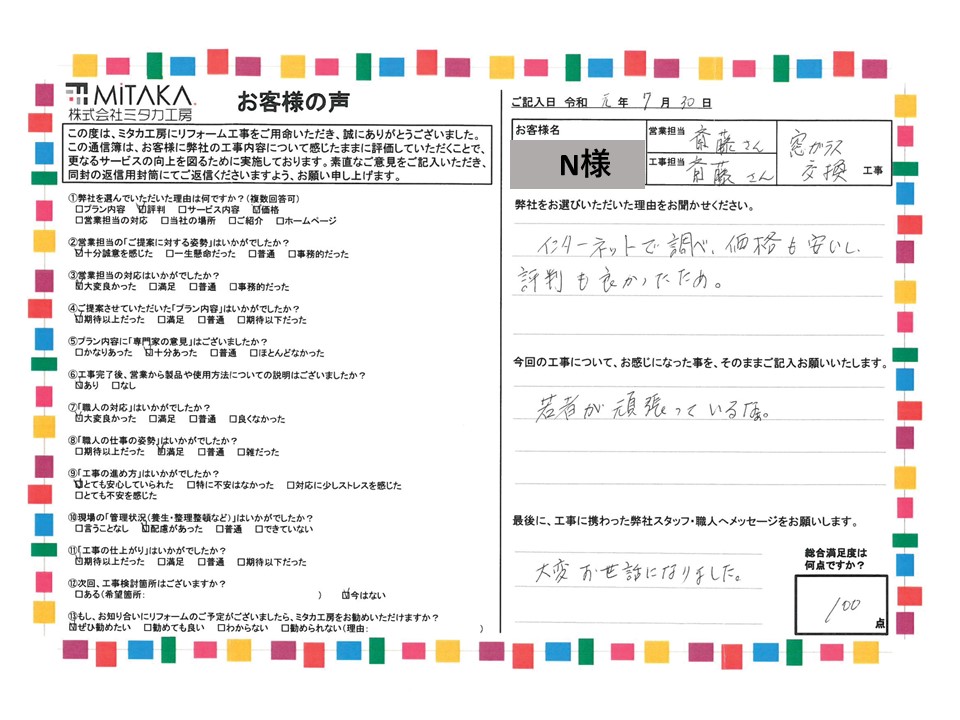 MiTAKA
株式会社ミタカ工房
お客様の声
この度は、ミタカ工房にリフォーム工事をご用命いただき、誠にありがとうございました。
この通信簿は、お客様に弊社の工事内容について感じたままに評価していただくことで、
更なるサービスの向上を図るために実施しております。素直なご意見をご記入いただき、
同封の返信用封筒にてご返信くださいますよう、お願い申し上げます。
①弊社を選んでいただいた理由は何ですか?(複数回答可)
□プラン内容 ☑評判 □サービス内容 ☑価格
□営業担当の対応 □当社の場所 □ご紹介 □ホームページ
②営業担当の「ご提案に対する姿勢」はいかがでしたか?
☑十分誠意を感じた □一生懸命だった □普通 □事務的だった
③営業担当の対応はいかがでしたか?
☑大変良かった □満足 □普通 □事務的だった
④ご提案させていただいた「プラン内容」はいかがでしたか?
☑期待以上だった □満足 □普通 □期待以下だった
⑤プラン内容に「専門家の意見」はございましたか?
□かなりあった ☑十分あった □普通 □ほとんどなかった
⑥工事完了後、営業から製品や使用方法についての説明はございましたか?
☑あり □なし
⑦「職人の対応」はいかがでしたか?
☑大変良かった □満足 □普通 □良くなかった
⑧「職人の仕事の姿勢」はいかがでしたか?
□期待以上だった ☑満足 □普通 □雑だった
⑨「工事の進め方」はいかがでしたか?
☑とても安心していられた □特に不安はなかった □対応に少しストレスを感じた
□とても不安を感じた
⑩現場の「管理状況(養生・整理整頓など)」はいかがでしたか?
□言うことなし ☑配慮があった □普通 □できていない
⑪「工事の仕上がり」はいかがでしたか?
☑期待以上だった □満足 □普通 □期待以下だった
⑫次回、工事検討箇所はございますか?
□ある(希望箇所: ) ☑今はない
⑬もし、お知り合いにリフォームのご予定がございましたら、ミタカ工房をお勧めいただけますか?
☑ぜひ勧めたい □勧めても良い □わからない □勧められない(理由: )
ご記入日 令和 元 年 7 月 30 日
お客様名
N様
営業担当 斎藤さん
工事担当 斎藤さん
窓ガラス
交換 工事
弊社をお選びいただいた理由をお聞かせください。
インターネットで調べ、価格も安いし、
評判も良かったため。
今回の工事について、お感じになった事を、そのままご記入お願いいたします。
若者が頑張っているな。
最後に、工事に携わった弊社スタッフ・職人へメッセージをお願いします。
大変お世話になりました。
総合満足度は
何点ですか?
100
点